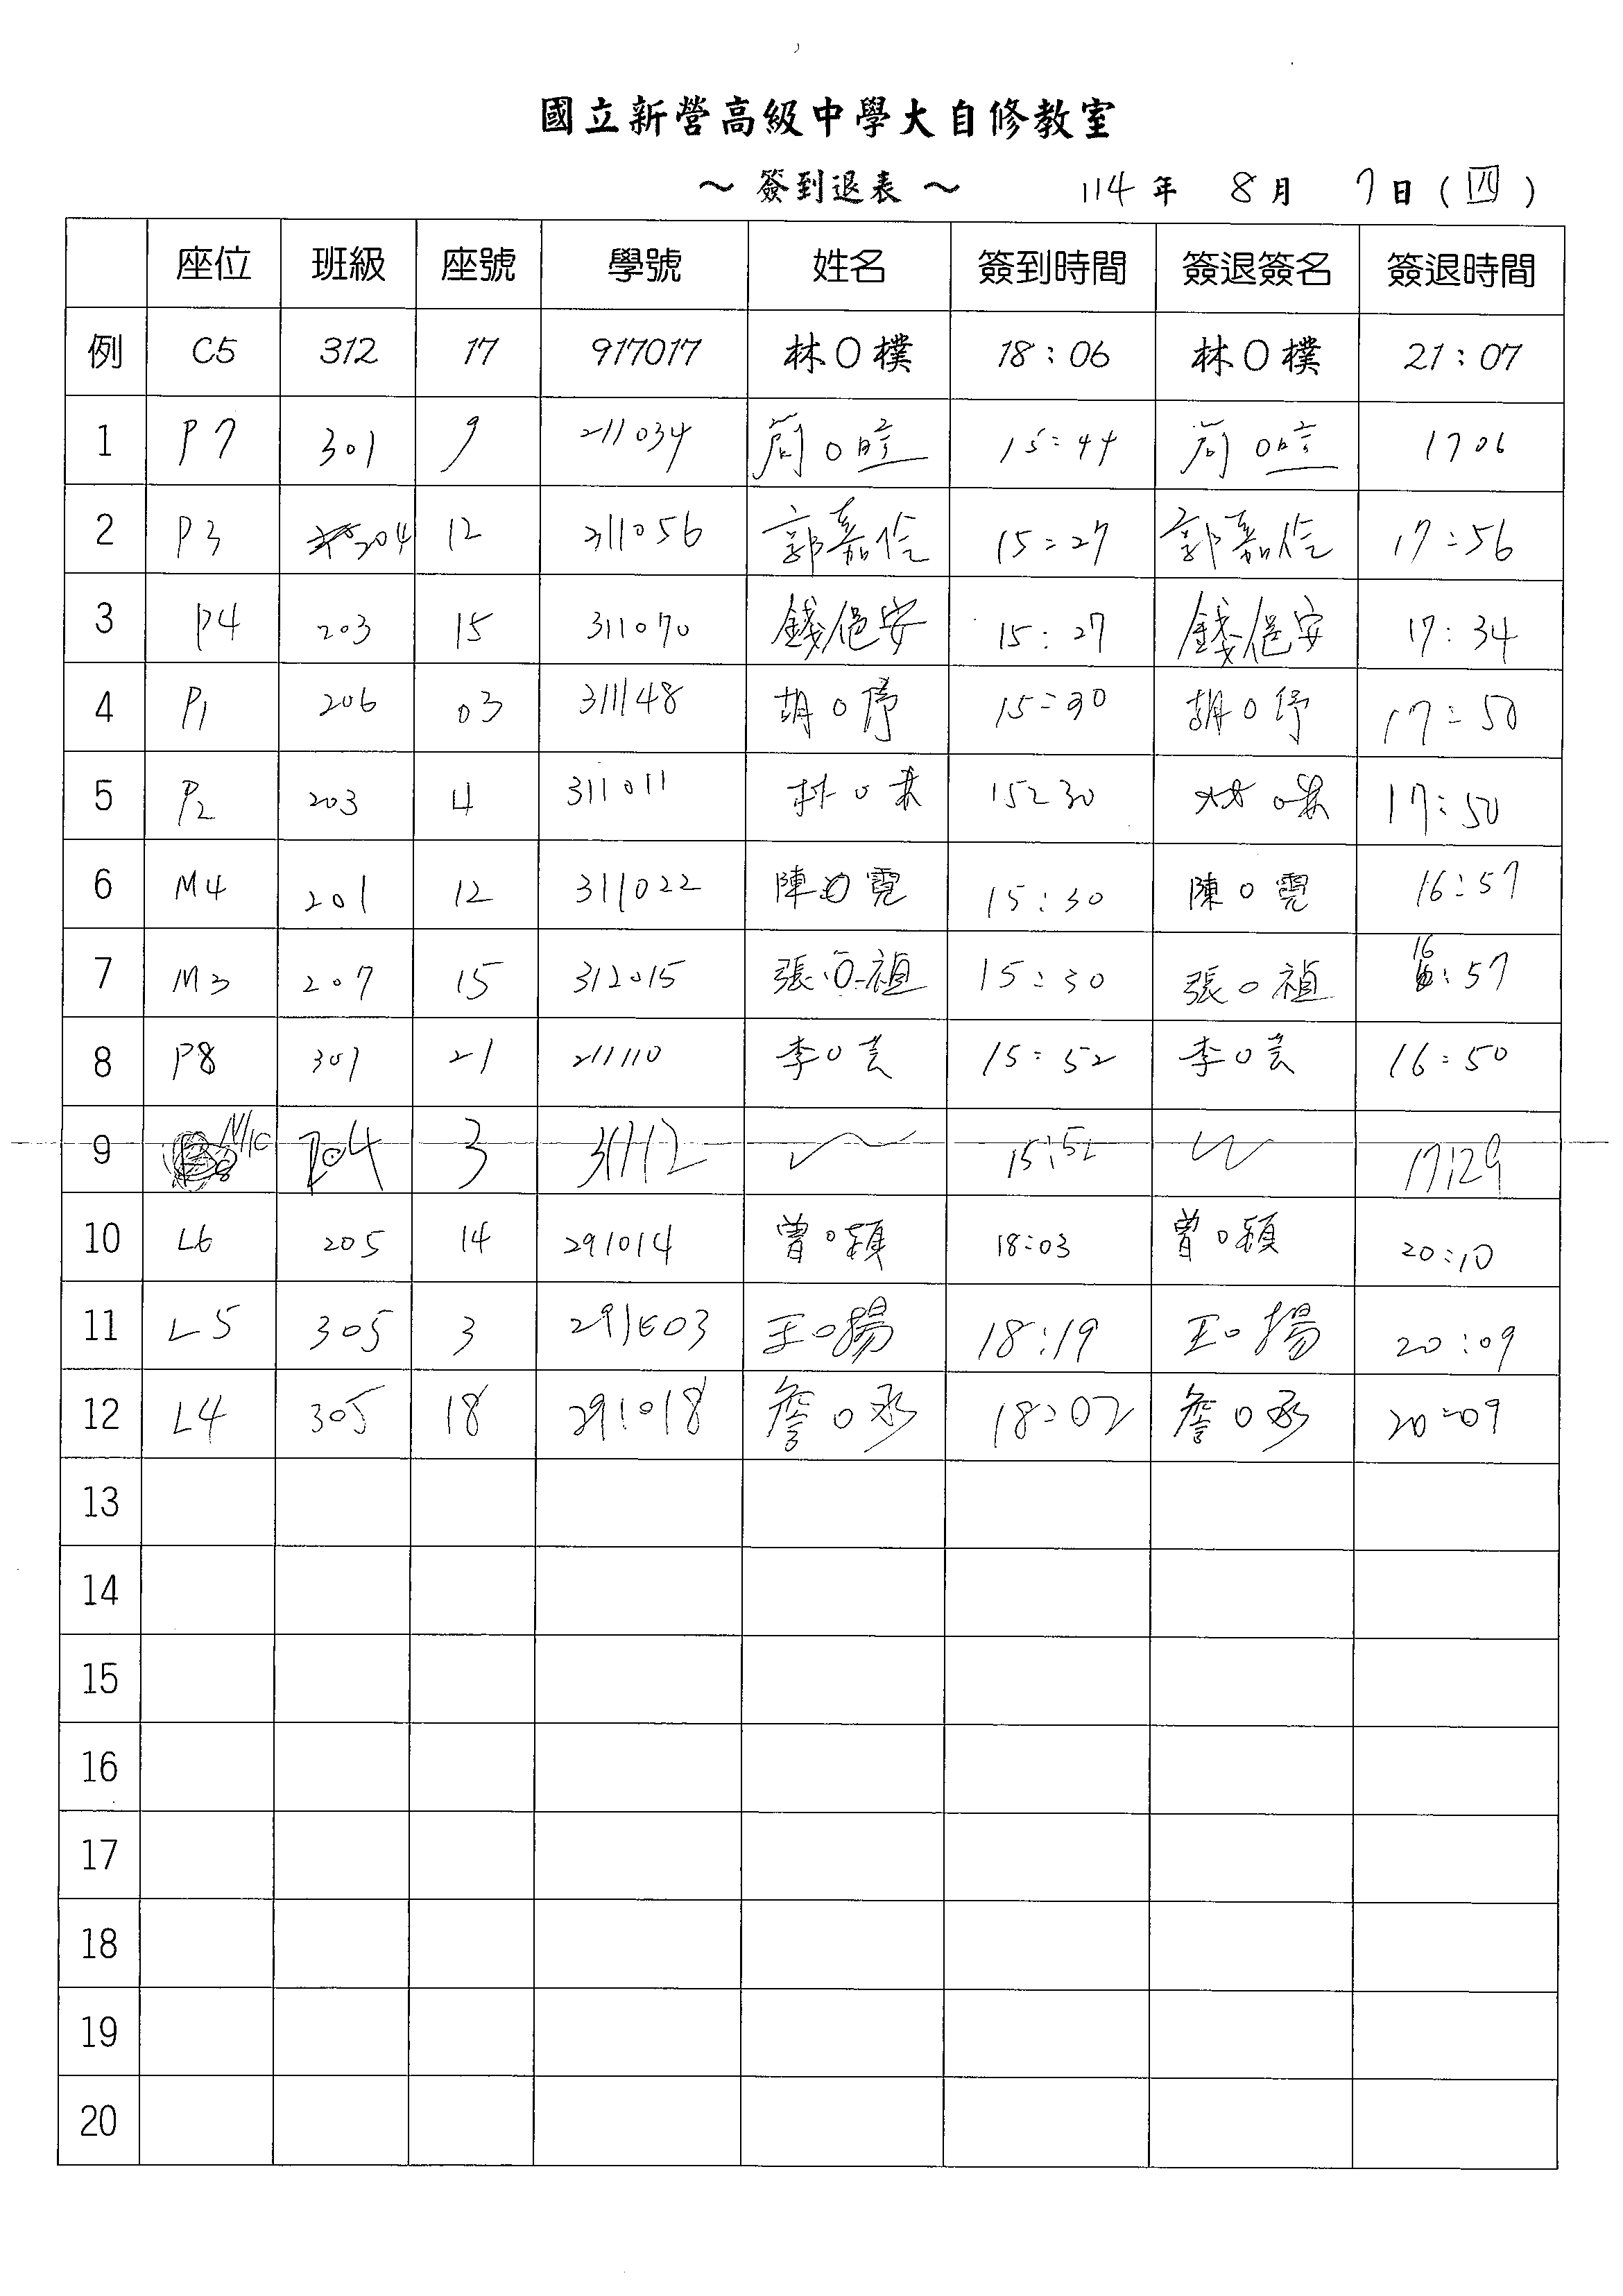 國立新營高級中學大自修教室
～ 簽到退表 ～ 114 年 8 月 7 日 ( 四 )
座位 班級 座號 學號 姓名 簽到時間 簽退簽名 簽退時間
例 C5 312 17 917017 林O樸 18:06 林O樸 21:07
1 P7 301 9 211034 O 15:44 O 1706
2 P3 204 12 311056 郭嘉 15:27 郭嘉 17:56
3 P4 203 15 311070 錢俋安 15:27 錢俋安 17:34
4 P1 206 03 311148 胡O 15:30 胡O 17:50
5 P2 203 4 311011 林O 15:30 林O 17:50
6 M4 201 12 311022 陳O霓 15:30 陳O霓 16:57
7 M3 207 15 312015 張O禎 15:30 張O禎 16:57
8 P8 301 21 211110 李O芸 15:52 李O芸 16:50
9 M10 204 3 31112 15:52 17:29
10 L6 205 14 291014 曾O穎 18:03 曾O穎 20:10
11 L5 305 3 291003 王O揚 18:19 王O揚 20:09
12 L4 305 18 291018 詹O丞 18:02 詹O丞 20:09
13
14
15
16
17
18
19
20